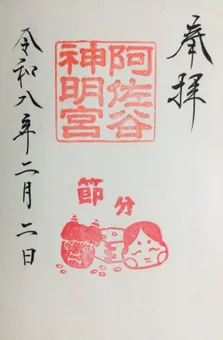 奉拝
阿佐谷
神明宮
節分
令和八年二月二日